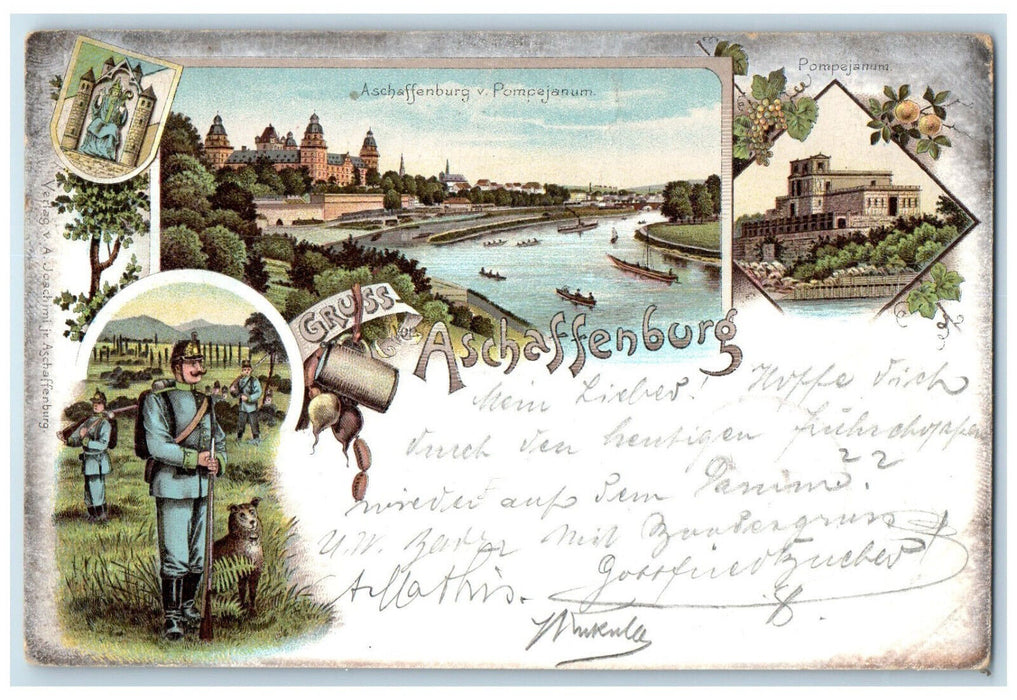 Aschaffenburg v. Pompejanum.
Pompejanum.
Verlag v. A. Joachimi jr. Aschaffenburg.
GRUSS
von
Aschaffenburg
Mein Lieber! Hoffe dich
durch den heutigen Frühschoppen
wieder auf dem Damm.
U. W. Bader Mit Bundesgruss
A. Mathis. Gottfried